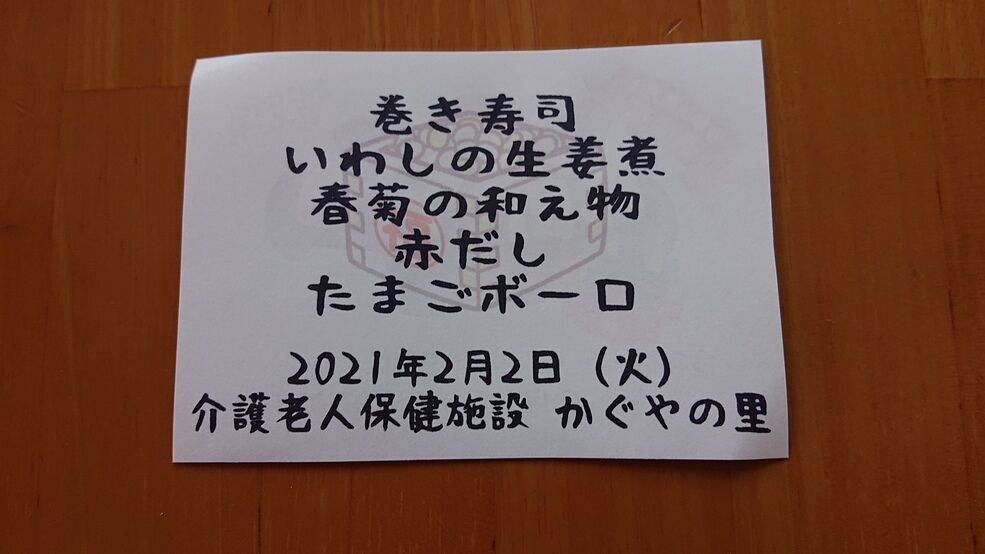 巻き寿司
いわしの生姜煮
春菊の和え物
赤だし
たまごボーロ
2021年2月2日（火）
介護老人保健施設 かぐやの里